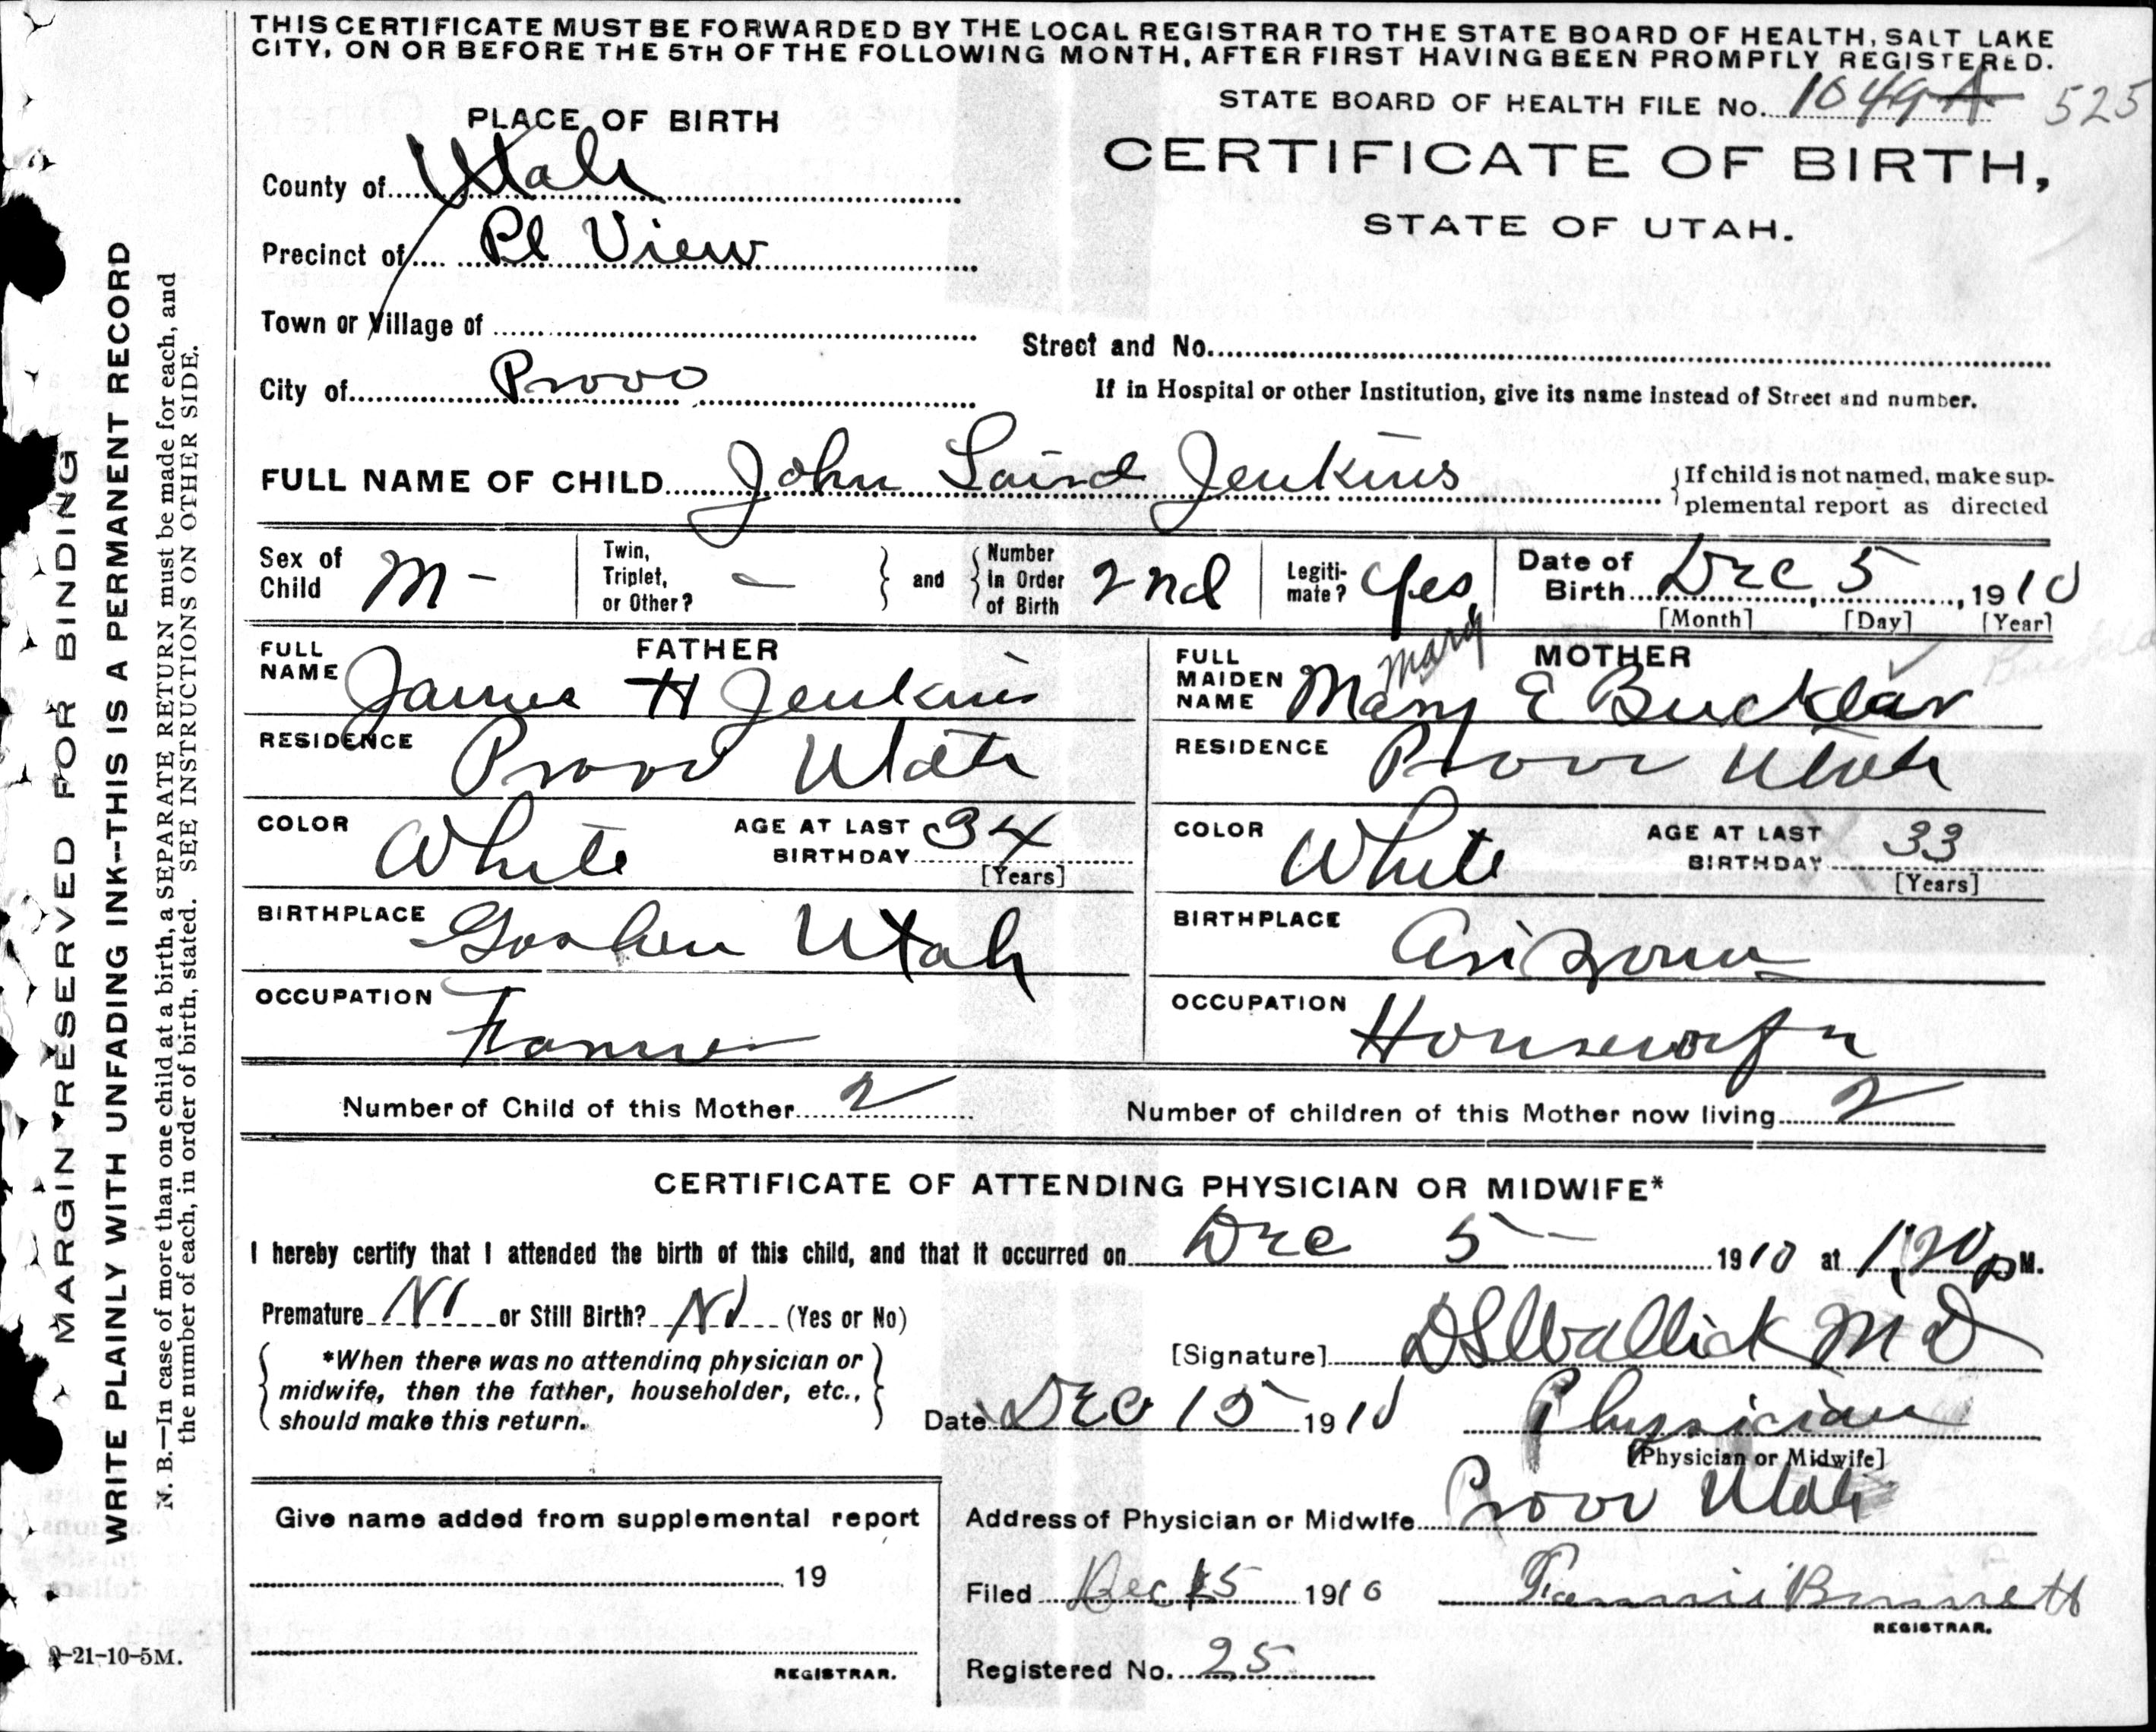 THIS CERTIFICATE MUST BE FORWARDED BY THE LOCAL REGISTRAR TO THE STATE BOARD OF HEALTH, SALT LAKE
CITY, ON OR BEFORE THE 5TH OF THE FOLLOWING MONTH, AFTER FIRST HAVING BEEN PROMPTLY REGISTERED.
STATE BOARD OF HEALTH FILE No. 1049A 525
PLACE OF BIRTH
CERTIFICATE OF BIRTH,
STATE OF UTAH.
County of Utah
Precinct of Pl View
Town or Village of
Street and No.
City of Provo
If in Hospital or other Institution, give its name instead of Street and number.
FULL NAME OF CHILD John Laird Jenkins
If child is not named, make sup-
plemental report as directed
Sex of Child M -
Twin, Triplet, or Other? -
and
Number in Order of Birth 2nd
Legiti-mate? Yes
Date of Birth Dec 5, 1910
[Month] [Day] [Year]
FATHER
FULL NAME James H Jenkins
RESIDENCE Provo Utah
COLOR White
AGE AT LAST BIRTHDAY 34
[Years]
BIRTHPLACE Goshen Utah
OCCUPATION Farmer
MOTHER
Mary
FULL MAIDEN NAME Mary E Bucklar
RESIDENCE Provo Utah
COLOR White
AGE AT LAST BIRTHDAY 33
[Years]
BIRTHPLACE Arizona
OCCUPATION Housewife
Number of Child of this Mother 2
Number of children of this Mother now living 2
CERTIFICATE OF ATTENDING PHYSICIAN OR MIDWIFE*
I hereby certify that I attended the birth of this child, and that it occurred on Dec 5 - 1910 at 1,20 p M.
Premature No or Still Birth? No (Yes or No)
*When there was no attending physician or
midwife, then the father, householder, etc.,
should make this return.
[Signature] DS Wallick MD
Date Dec 15 1910
Physician
[Physician or Midwife]
Address of Physician or Midwife Provo Utah
Give name added from supplemental report
19
REGISTRAR.
Filed Dec 15 1910 Fannie Bennett
REGISTRAR.
Registered No. 25
MARGIN RESERVED FOR BINDING
WRITE PLAINLY WITH UNFADING INK--THIS IS A PERMANENT RECORD
N. B.—In case of more than one child at a birth, a SEPARATE RETURN must be made for each, and
the number of each, in order of birth, stated. SEE INSTRUCTIONS ON OTHER SIDE.
-21-10-5M.